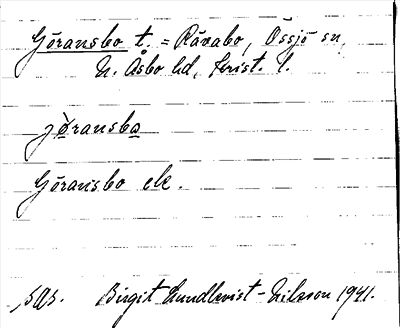 Göransbo t. = Rävabo, Össjö sn,
N. Åsbo hd, Krist. l.
jøransbo
Göransbo ek.
sgs. Birgit Lundkvist-Nilsson 1941.